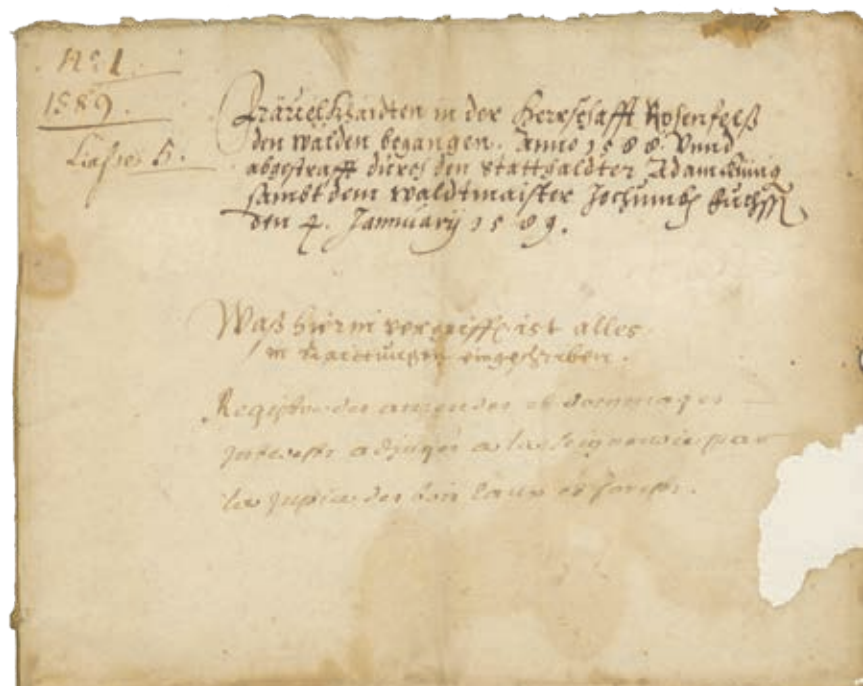 N.º 1.
1589.
Liasse 5.
Frävelkhaidten in der Herrschafft Rosenfelß
den wälden begangen. Anno 1588. Vnnd
abgestrafft durch den Statthaldter Adam
sambt dem Waldtmaister Jochumb
den 4. Januarij 1589.
Waß hierin vergriffen ist alles
in Raittungen eingeschriben.
Registre des amendes et dommages
interests adjugés a la seigneurie par
la justice des bois eaux et forests.